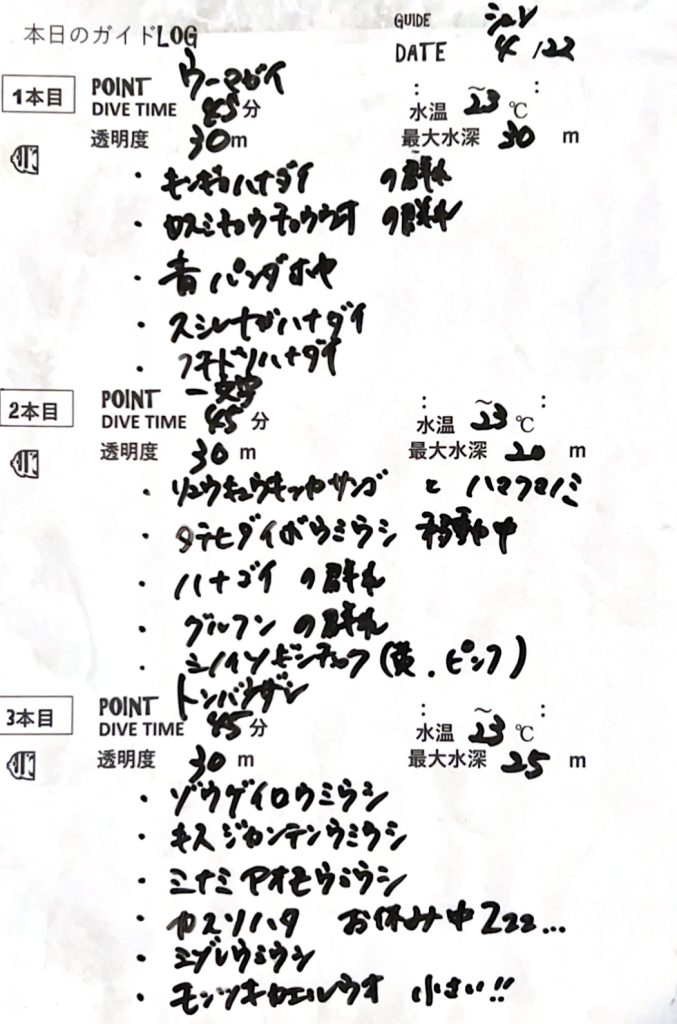 本日のガイドLOG
GUIDE シュン
DATE 4/22
1本目 POINT ウーマガイ
DIVE TIME 45分 水温 ～23℃
透明度 30m 最大水深 30m
・キンギョハナダイ の群れ
・カスミチョウチョウウオ の群れ
・青パンダホヤ
・スジナガハナダイ
・フチドリハナダイ
2本目 POINT 一文字
DIVE TIME 45分 水温 ～23℃
透明度 30m 最大水深 20m
・リュウキュウキッカサンゴ と ハマクマノミ
・タテヒダイボウミウシ 移動中
・ハナゴイ の群れ
・グルクン の群れ
・ミノイソギンチャク(黄、ピンク)
3本目 POINT トンバクザシ
DIVE TIME 45分 水温 ～23℃
透明度 30m 最大水深 25m
・ゾウゲイロウミウシ
・キスジカンテンウミウシ
・ミナミアオモウミウシ
・カスリハタ お休み中Zzz...
・ミゾレウミウシ
・モンツキカエルウオ 小さい!!